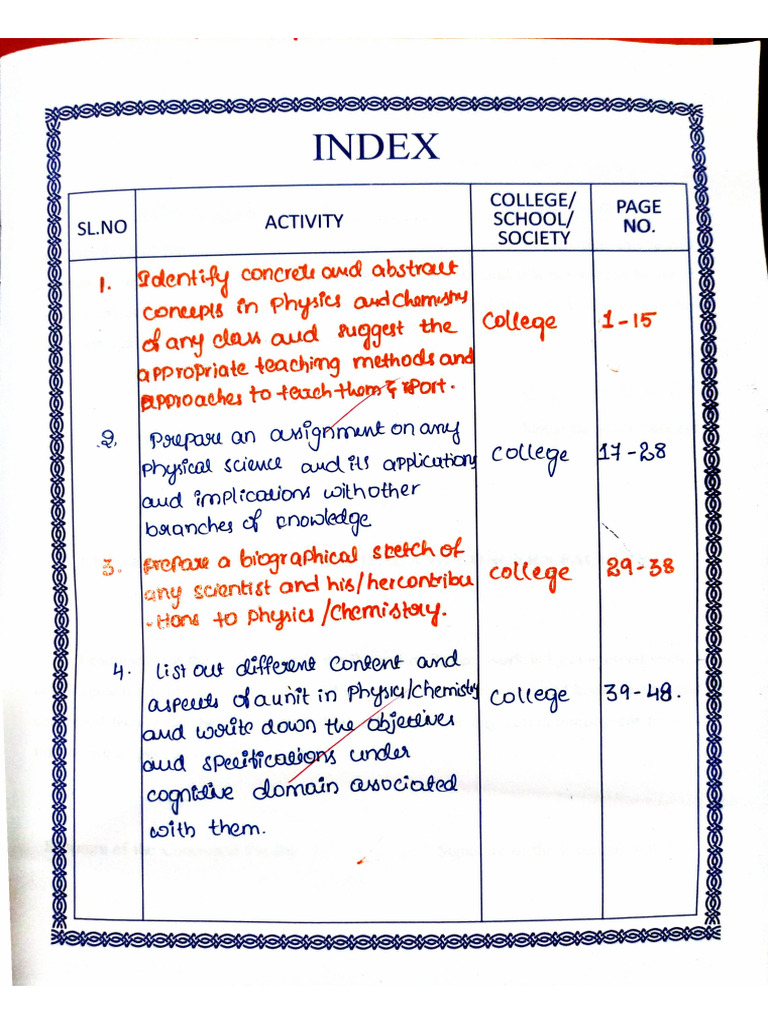 INDEX
SL.NO ACTIVITY COLLEGE/ SCHOOL/ SOCIETY PAGE NO.
1. Identify concrete and abstract
concepts in Physics and Chemistry
of any class and suggest the College 1-15
appropriate teaching methods and
approaches to teach them & report.
2. Prepare an assignment on any
physical science and its applications College 17-28
and implications with other
branches of knowledge
3. Prepare a biographical sketch of
any scientist and his/her contribu College 29-38
-tions to physics/chemistory.
4. List out different content and
aspects of a unit in Physics/chemistry College 39-48.
and write down the objectives
and specifications under
cognitive domain associated
with them.